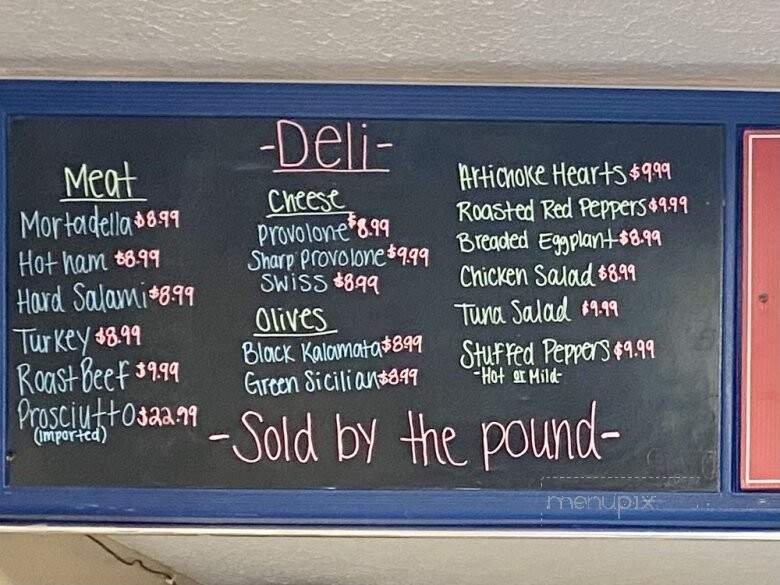 -Deli-
Meat
Mortadella $8.99
Hot ham $8.99
Hard Salami $8.99
Turkey $8.99
Roast Beef $9.99
Prosciutto $22.99
(imported)
Cheese
Provolone $8.99
Sharp Provolone $9.99
Swiss $8.99
Olives
Black Kalamata $8.99
Green Sicilian $8.99
Artichoke Hearts $9.99
Roasted Red Peppers $9.99
Breaded Eggplant $8.99
Chicken Salad $8.99
Tuna Salad $9.99
Stuffed Peppers $9.99
-Hot or Mild-
-Sold by the pound-
menupix